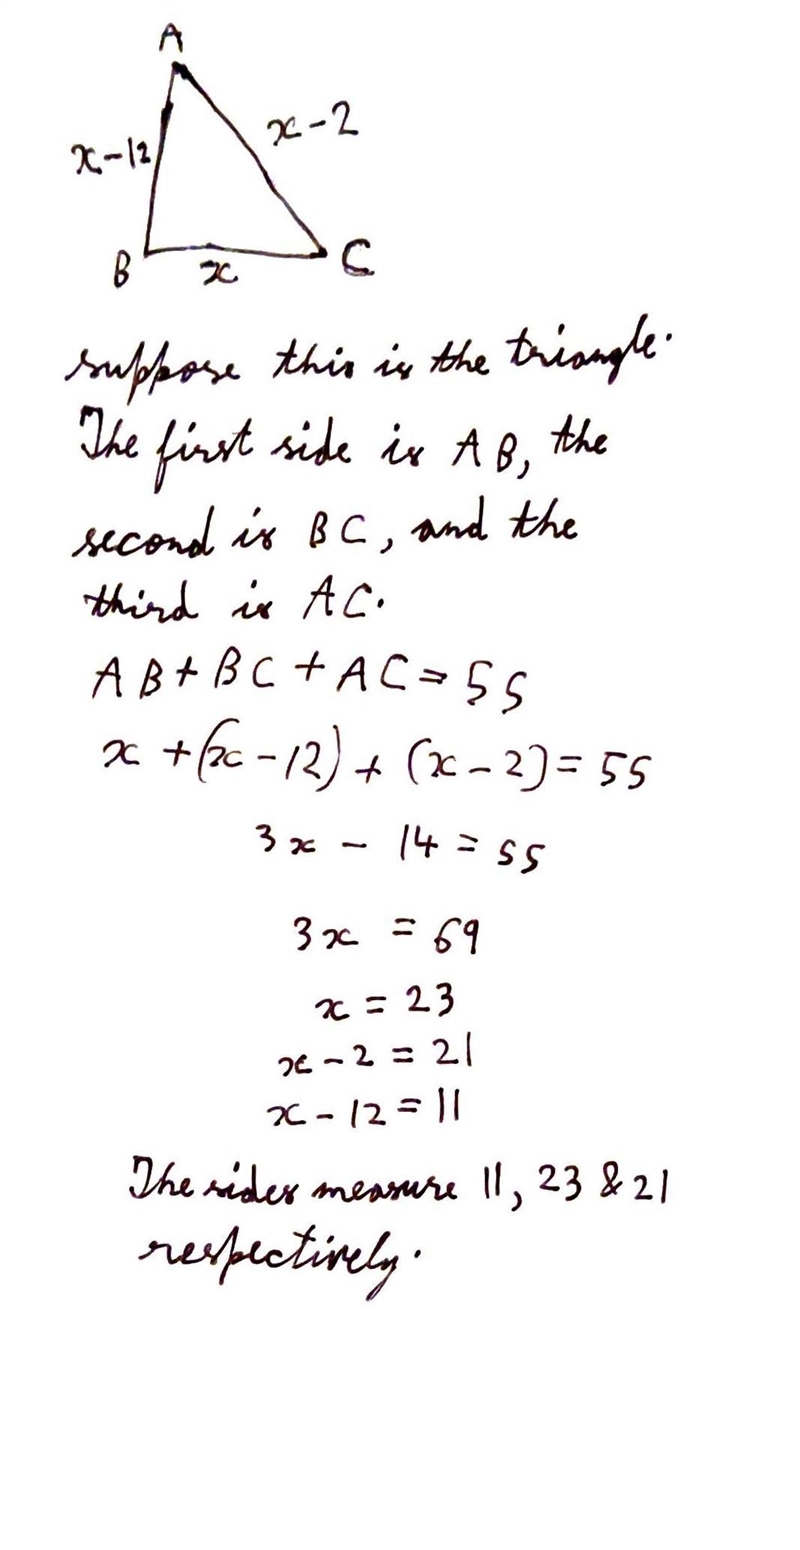 A
x-12
x-2
B
x
C
suppose this is the triangle.
The first side is AB, the
second is BC, and the
third is AC.
AB+BC+AC=55
x+(x-12)+(x-2)=55
3x - 14 = 55
3x = 69
x = 23
x-2 = 21
x-12 = 11
The sides measure 11, 23 & 21
respectively.